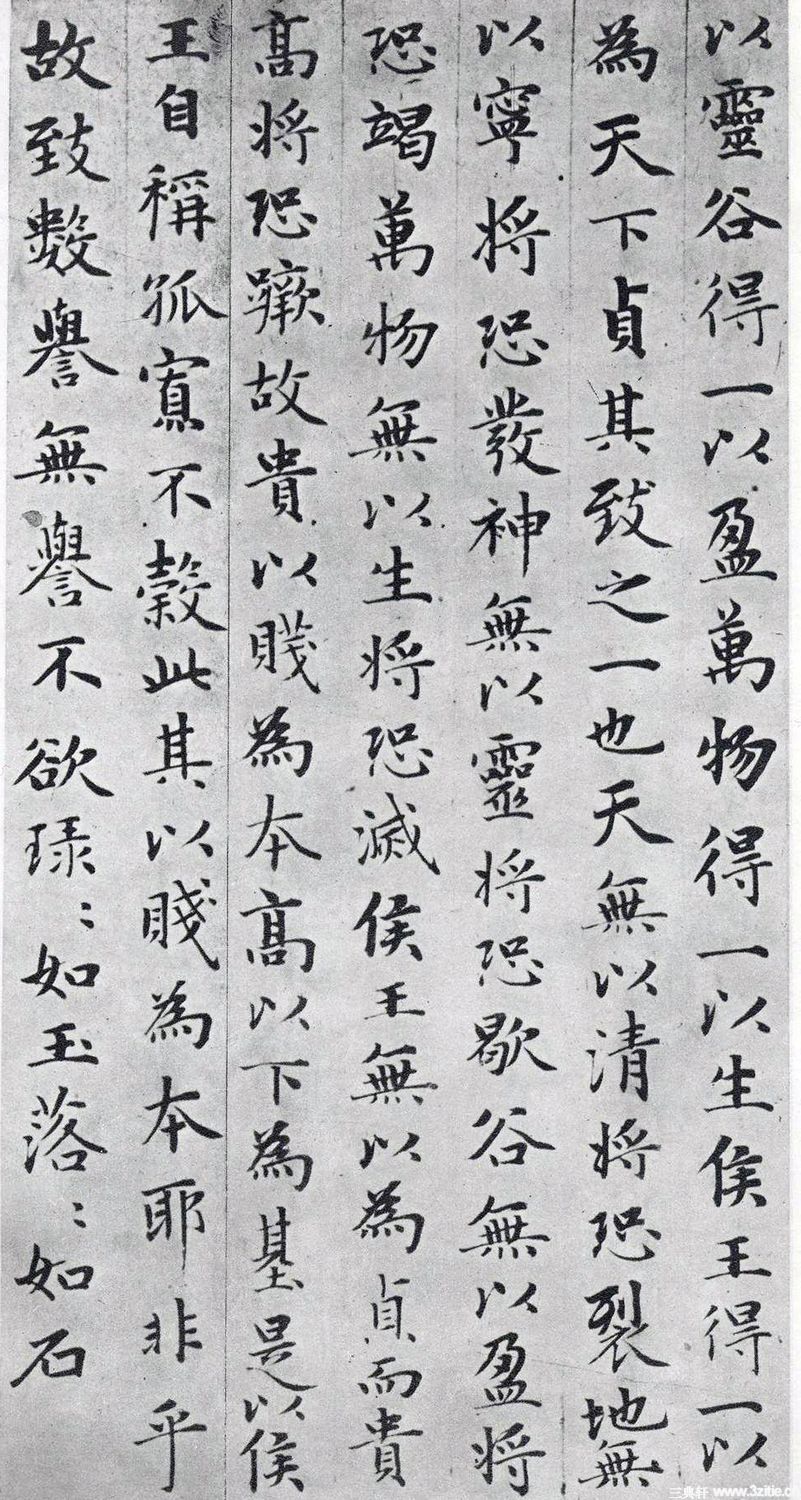 以靈谷得一以盈萬物得一以生侯王得一以
為天下貞其致之一也天無以清將恐裂地無
以寧將恐發神無以靈將恐歇谷無以盈將
恐竭萬物無以生將恐滅侯王無以為貞而貴
高將恐蹶故貴以賤為本高以下為基是以侯
王自稱孤寡不穀此其以賤為本耶非乎
故致數譽無譽不欲琭〻如玉落〻如石
三典轩 www.3zitie.c